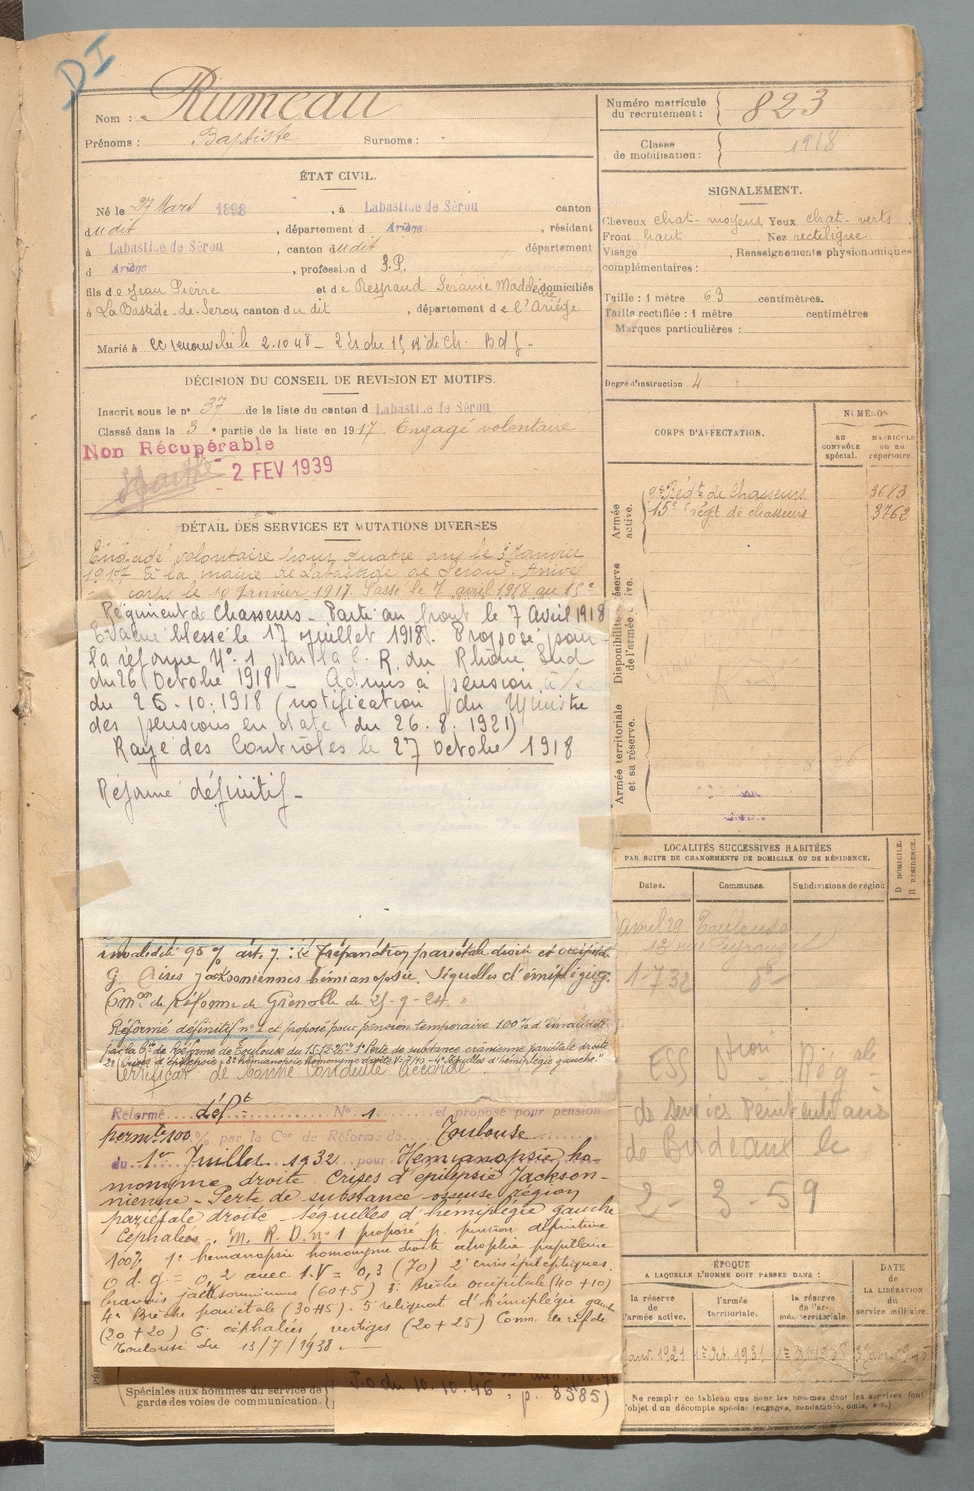 DI
Nom : Rumeau
Prénoms : Baptiste Surnoms :
Numéro matricule du recrutement : 823
Classe de mobilisation : 1918
ÉTAT CIVIL.
Né le 27 Mars 1898, à Labastide de Sérou canton
dudit, département d Ariège, résidant
à Labastide de Sérou, canton dudit département
d Ariège, profession d S.P.
fils de Jean Pierre et de Respaud Séranie Madeleine domiciliés
à La Bastide-de-Serou canton du dit, département de l'Ariège
Marié à CC renouvelée le 2.10.48
DÉCISION DU CONSEIL DE REVISION ET MOTIFS.
Inscrit sous le n° 37 de la liste du canton d Labastide de Sérou
Classé dans la 3e partie de la liste en 1917. Engagé volontaire
Non Récupérable
2 FEV 1939
DÉTAIL DES SERVICES ET MUTATIONS DIVERSES
Engagé volontaire pour quatre ans le 3 Janvier
1917 à la mairie de Labastide de Serou. Arrivé
au corps le 10 Janvier 1917. Passé le 7 avril 1918 au 15e
Régiment de Chasseurs - Parti au front le 7 Avril 1918
Evacué blessé le 17 juillet 1918. Proposé pour
la réforme N° 1 par la C. R. du Rhône Sud
du 26 Octobre 1918 - Admis à pension
du 26.10.1918 (notification du Ministre
des pensions en date du 26.8.1921)
Rayé des Contrôles le 27 Octobre 1918
Réforme définitif -
invalidité 95% art. 7 : Trépanation pariétale droite et occipitale
G. Crises jacksoniennes hémianopsie. Séquelles d'émiplégie g.
Com.on de réforme de Grenoble du 25-9-24. »
Réformé définitif n° 1 et proposé pour pension temporaire 100% d'invalidité
par la Con de Réforme de Toulouse du 15-12-26 1° Perte de substance crânienne pariétale droite
2° Crises d'épilepsie 3° Hémianopsie homonyme droite 4° Séquelles d'hémiplégie gauche."
Certificat de bonne Conduite Accordé
Réformé déft N° 1 et proposé pour pension
permte 100 % par la Con de Réforme de Toulouse
du 1er Juillet 1932 pour Hémianopsie ho-
monyme droite Crises d'épilepsie Jackson-
nienne - Perte de substance osseuse région
pariétale droite - séquelles d'hémiplégie gauche
Céphalées. M. R. D. n° 1 proposé p. pension définitive
100% 1° hémianopsie homonyme droite atrophie papillaire
O d.g. = 0,2 avec 1.V = 0,3 (70) 2° crises épileptiques
jacksoniennes (60+5) 3° Brèche occipitale (40+10)
4° Brèche pariétale (30+15). 5 reliquat d'hémiplégie gauche
(20+20) 6. céphalées, vertiges (20+25) Comm. de réf de
Toulouse du 13/7/1938.
Spéciales aux hommes du service de garde des voies de communication.
J.O du 10.10.46, p. 8585)
SIGNALEMENT.
Cheveux chat-moyens, Yeux chat-verts
Front haut Nez rectiligne
Visage , Renseignements physionomiques
complémentaires :
Taille : 1 mètre 63 centimètres.
Taille rectifiée : 1 mètre centimètres
Marques particulières :
Degré d'instruction 4
CORPS D'AFFECTATION.
NUMÉROS
AU CONTRÔLE spécial.
MATRICULE ou au répertoire.
Armée active.
9e Régt de Chasseurs 3683
15e Régt de chasseurs 3762
Disponibilité et réserve de l'armée active.
Armée territoriale et sa réserve.
LOCALITÉS SUCCESSIVES HABITÉES
PAR SUITE DE CHANGEMENTS DE DOMICILE OU DE RÉSIDENCE.
Dates. Communes. Subdivisions de région
D DOMICILE. R RÉSIDENCE.
avril 29 Toulouse
1-7 32 do
ESS Don Régale
de services Pénitentiaire
de Bordeaux le
2-3-59
ÉPOQUE
A LAQUELLE L'HOMME DOIT PASSER DANS :
la réserve de l'armée active.
l'armée territoriale.
la réserve de l'armée territoriale.
DATE DE LA LIBÉRATION du service militaire.
Janv. 1921 1er Oct. 1931
Ne remplir ce tableau que pour les hommes dont les services font
l'objet d'un décompte spécial (engagés, omis, etc.)